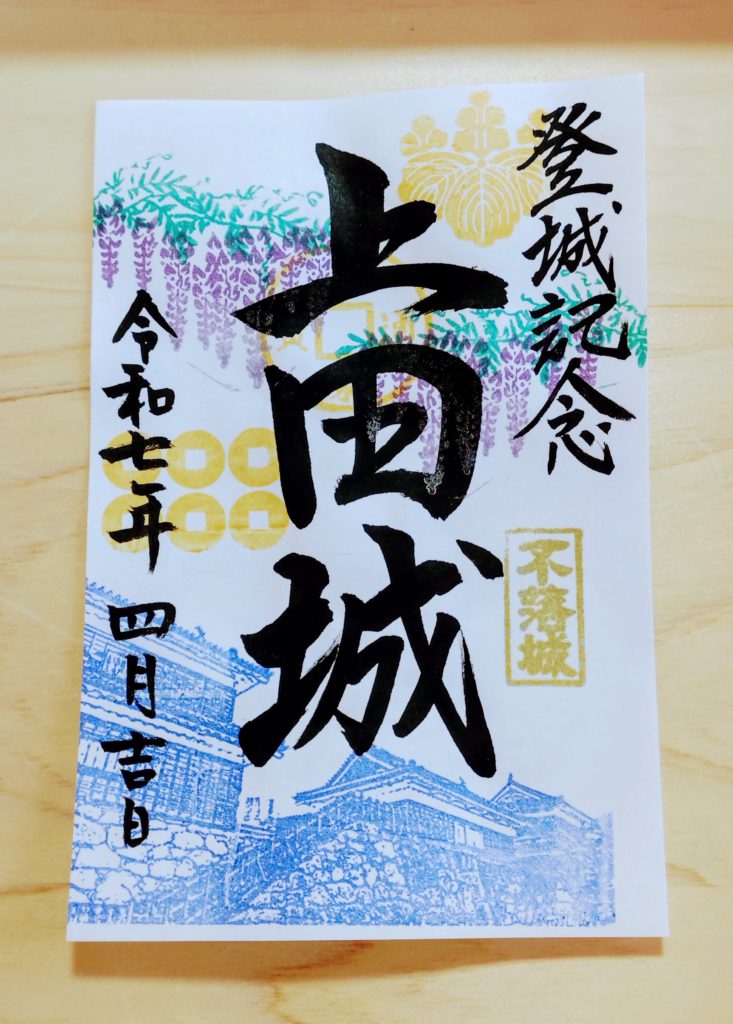 登城記念
上田城
不落城
令和七年 四月吉日